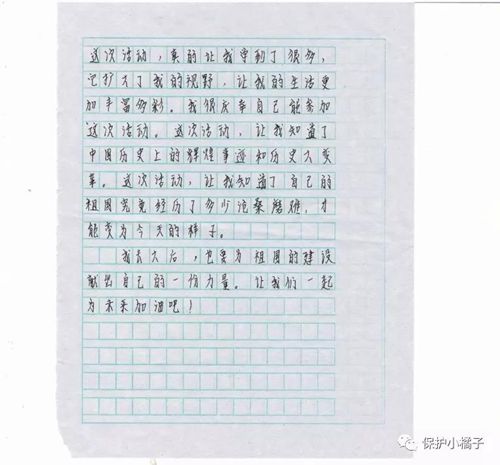 这次活动，真的让我学到了很多，
它扩大了我的视野，让我的生活更
加丰富多彩。我很庆幸自己能参加
这次活动。这次活动，让我知道了
中国历史上的辉煌事迹和历史大变
革。这次活动，让我知道了自己的
祖国究竟经历了多少沧桑磨难，才
能变为今天的样子。
我长大后，也要为祖国的建设
献出自己的一份力量。让我们一起
为未来加油吧！
保护小橘子